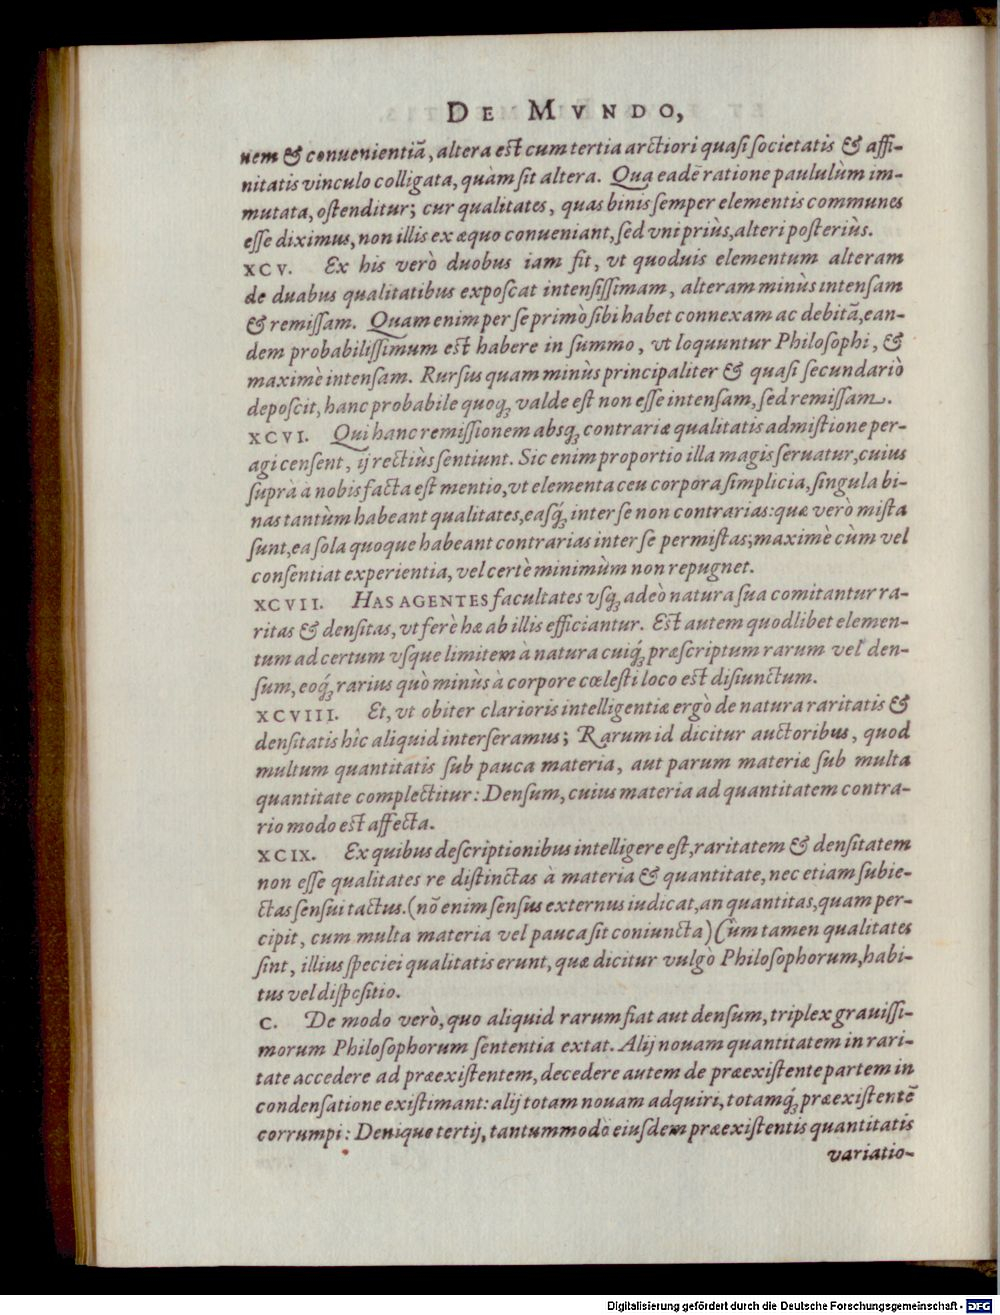 DE MVNDO,
nem & conuenientiã, altera est cum tertia arctiori quasi societatis & affi-
nitatis vinculo colligata, quàm sit altera. Qua eadē ratione paululùm im-
mutata, ostenditur; cur qualitates, quas binis semper elementis communes
esse diximus, non illis ex æquo conueniant, sed vni priùs, alteri posteriùs.
XCV. Ex his verò duobus iam fit, vt quoduis elementum alteram
de duabus qualitatibus exposcat intensissimam, alteram minùs intensam
& remissam. Quam enim per se primò sibi habet connexam ac debitã, ean-
dem probabilissimum est habere in summo, vt loquuntur Philosophi, &
maximè intensam. Rursus quam minùs principaliter & quasi secundariò
deposcit, hanc probabile quoqꝫ valde est non esse intensam, sed remissam.
XCVI. Qui hanc remissionem absqꝫ contrariæ qualitatis admistione per-
agi censent, ij rectiùs sentiunt. Sic enim proportio illa magis seruatur, cuius
suprà à nobis facta est mentio, vt elementa ceu corpora simplicia, singula bi-
nas tantùm habeant qualitates, easqꝫ́ inter se non contrarias: quæ verò mista
sunt, ea sola quoque habeant contrarias inter se permistas; maximè cùm vel
consentiat experientia, vel certè minimùm non repugnet.
XCVII. HAS AGENTES facultates vsqꝫ adeò natura sua comitantur ra-
ritas & densitas, vt ferè hæ ab illis efficiantur. Est autem quodlibet elemen-
tum ad certum vsque limitem à natura cuiqꝫ́ præscriptum rarum vel den-
sum, eoqꝫ́ rarius quò minùs à corpore cœlesti loco est disiunctum.
XCVIII. Et, vt obiter clarioris intelligentiæ ergò de natura raritatis &
densitatis hîc aliquid interseramus; Rarum id dicitur auctoribus, quod
multum quantitatis sub pauca materia, aut parum materiæ sub multa
quantitate complectitur: Densum, cuius materia ad quantitatem contra-
rio modo est affecta.
XCIX. Ex quibus descriptionibus intelligere est, raritatem & densitatem
non esse qualitates re distinctas à materia & quantitate, nec etiam subie-
ctas sensui tactus. (nō enim sensus externus iudicat, an quantitas, quam per-
cipit, cum multa materia vel pauca sit coniuncta) Cùm tamen qualitates
sint, illius speciei qualitatis erunt, quæ dicitur vulgò Philosophorum, habi-
tus vel dispositio.
C. De modo verò, quo aliquid rarum fiat aut densum, triplex grauissi-
morum Philosophorum sententia extat. Alij nouam quantitatem in rari-
tate accedere ad præexistentem, decedere autem de præexistente partem in
condensatione existimant: alij totam nouam adquiri, totamqꝫ́ præexistentē
corrumpi: Denique tertij, tantummodò eiusdem præexistentis quantitatis
variatio-
Digitalisierung gefördert durch die Deutsche Forschungsgemeinschaft - DFG